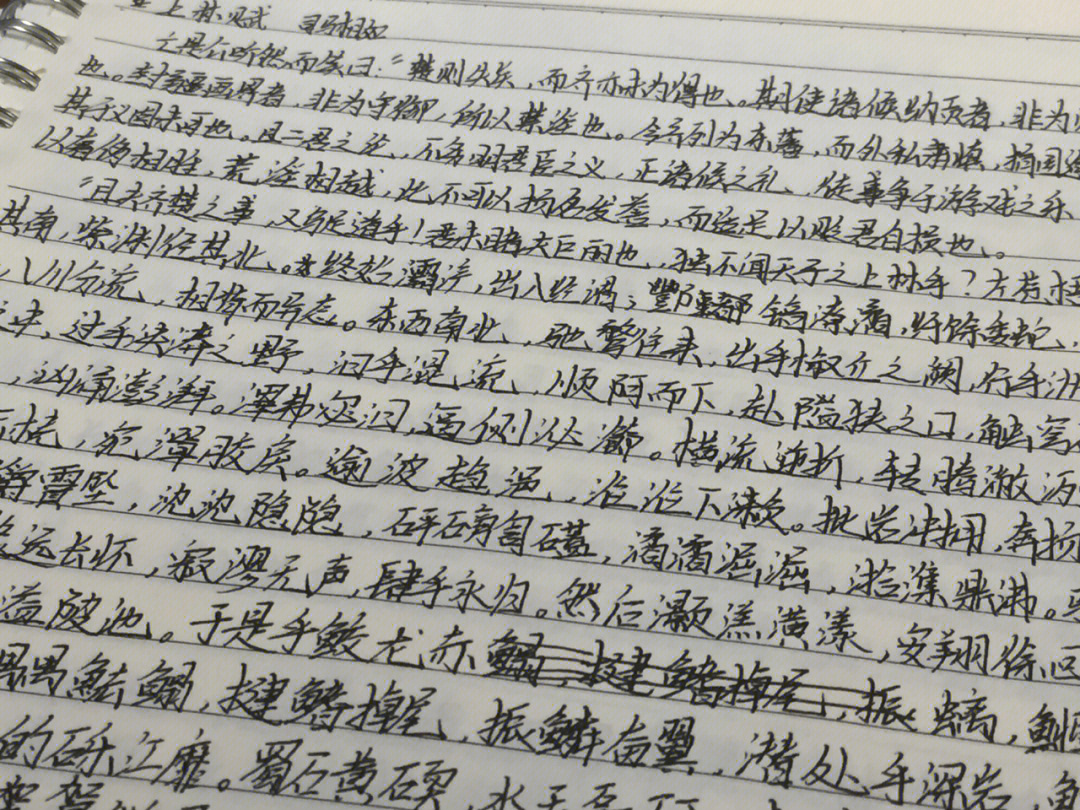 上林赋 司马相如
亡是公听然而笑曰：“楚则失矣，而齐亦未为得也。夫使诸侯纳贡者，非为
也。封疆画界者，非为守御，所以禁淫也。今齐列为东藩，而外私肃慎，捐国
其于义固未可也。且二君之论，不务明君臣之义，正诸侯之礼、徒事争于游戏之乐
以奢侈相胜，荒淫相越，此不可以扬名发誉，而适足以贬君自损也。
“且夫齐楚之事，又乌足道乎！君未睹夫巨丽也，独不闻天子之上林乎？左苍梧
其南，紫渊径其北。终始灞浐，出入泾渭；酆镐潦潏，纡馀委蛇，
八川分流，相背而异态。东西南北，驰骛往来，出乎椒丘之阙，行乎洲
中，过乎泱漭之野，汩乎混流，顺阿而下，赴隘狭之口，触穹
，汹涌澎湃。滭弗宓汩，逼侧泌瀄。横流逆折，转腾潎洌
桡，宛潬胶戾。逾波趋浥，涖涖下濑。批岩冲拥，奔扬
霣坠，沈沈隐隐，砰磅訇礚，潏潏淈淈，湁潗鼎沸。
远长怀，寂漻无声，肆乎永归。然后灏溔潢漾，安翔徐回
溢陂池。于是乎鲛龙赤螭，
禺禺魼鳎，揵鳍掉尾，振鳞奋翼，潜处乎深岩，
的砾江靡。蜀石黄碝，水玉磊